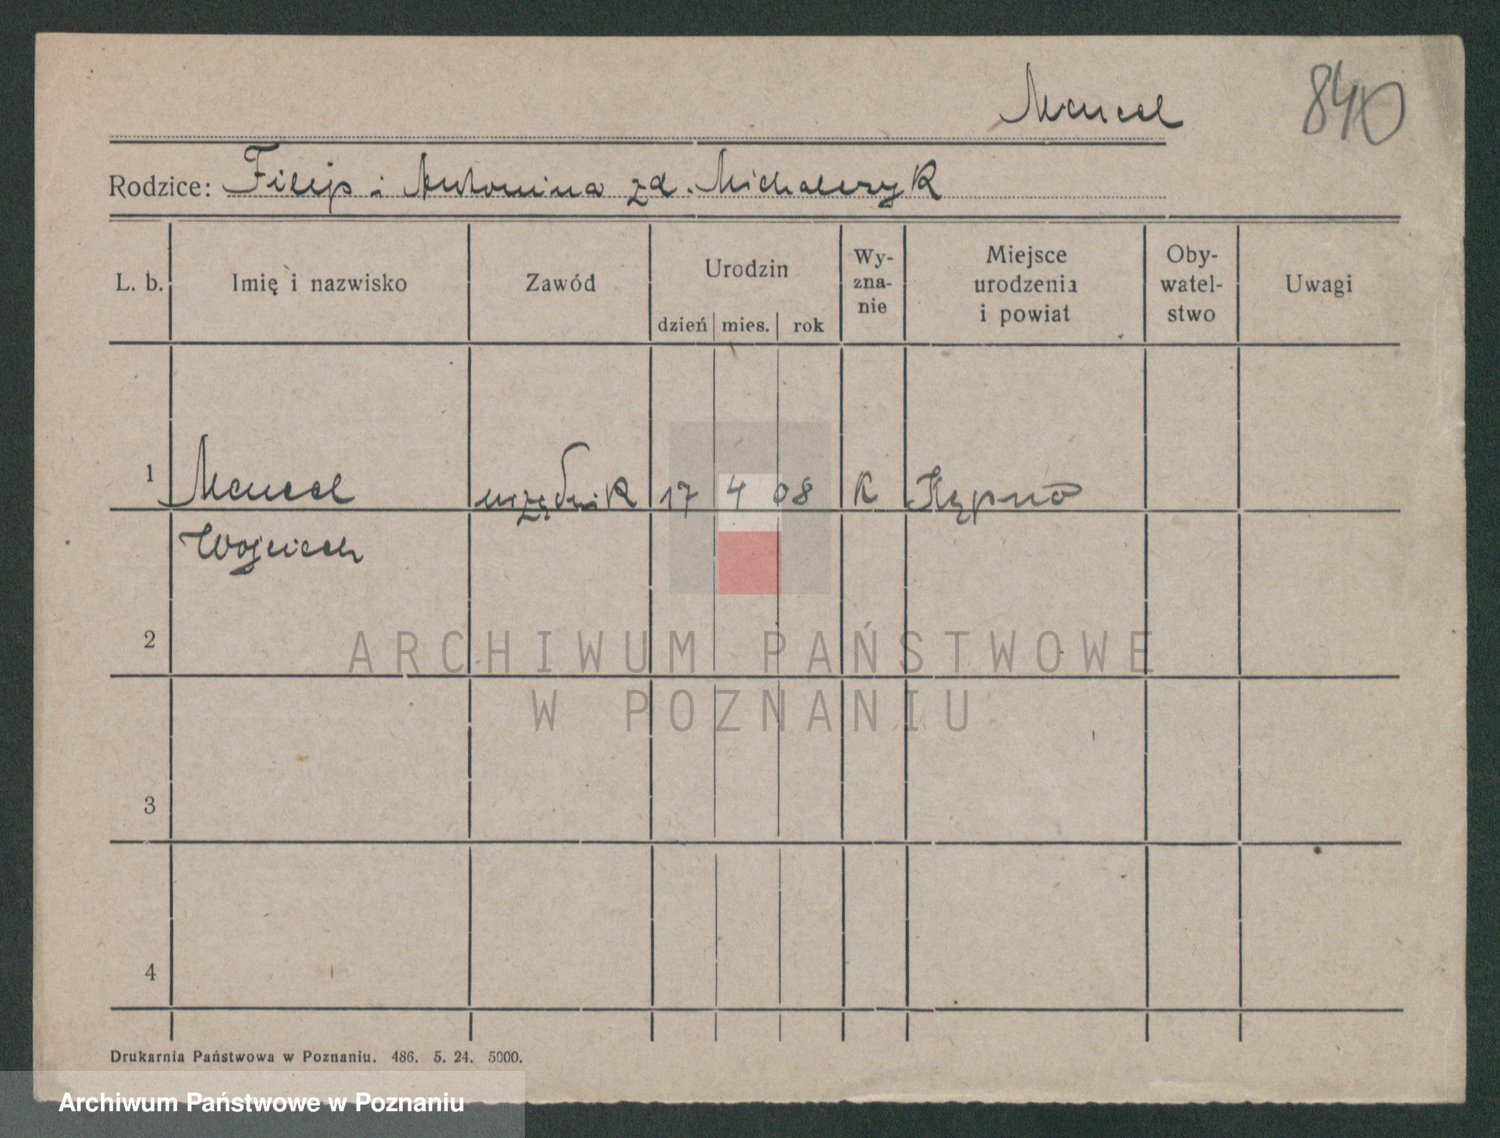 Mencel 840
Rodzice: Filip i Antonina zd. Michalczyk
L. b. Imię i nazwisko Zawód Urodzin dzień mies. rok Wy-zna-nie Miejsce urodzenia i powiat Oby-watel-stwo Uwagi
1 Mencel urzędnik 17 4 08 K Kępno
Wojciech
2
ARCHIWUM PAŃSTWOWE
W POZNANIU
3
4
Drukarnia Państwowa w Poznaniu. 486. 5. 24. 5000.
Archiwum Państwowe w Poznaniu